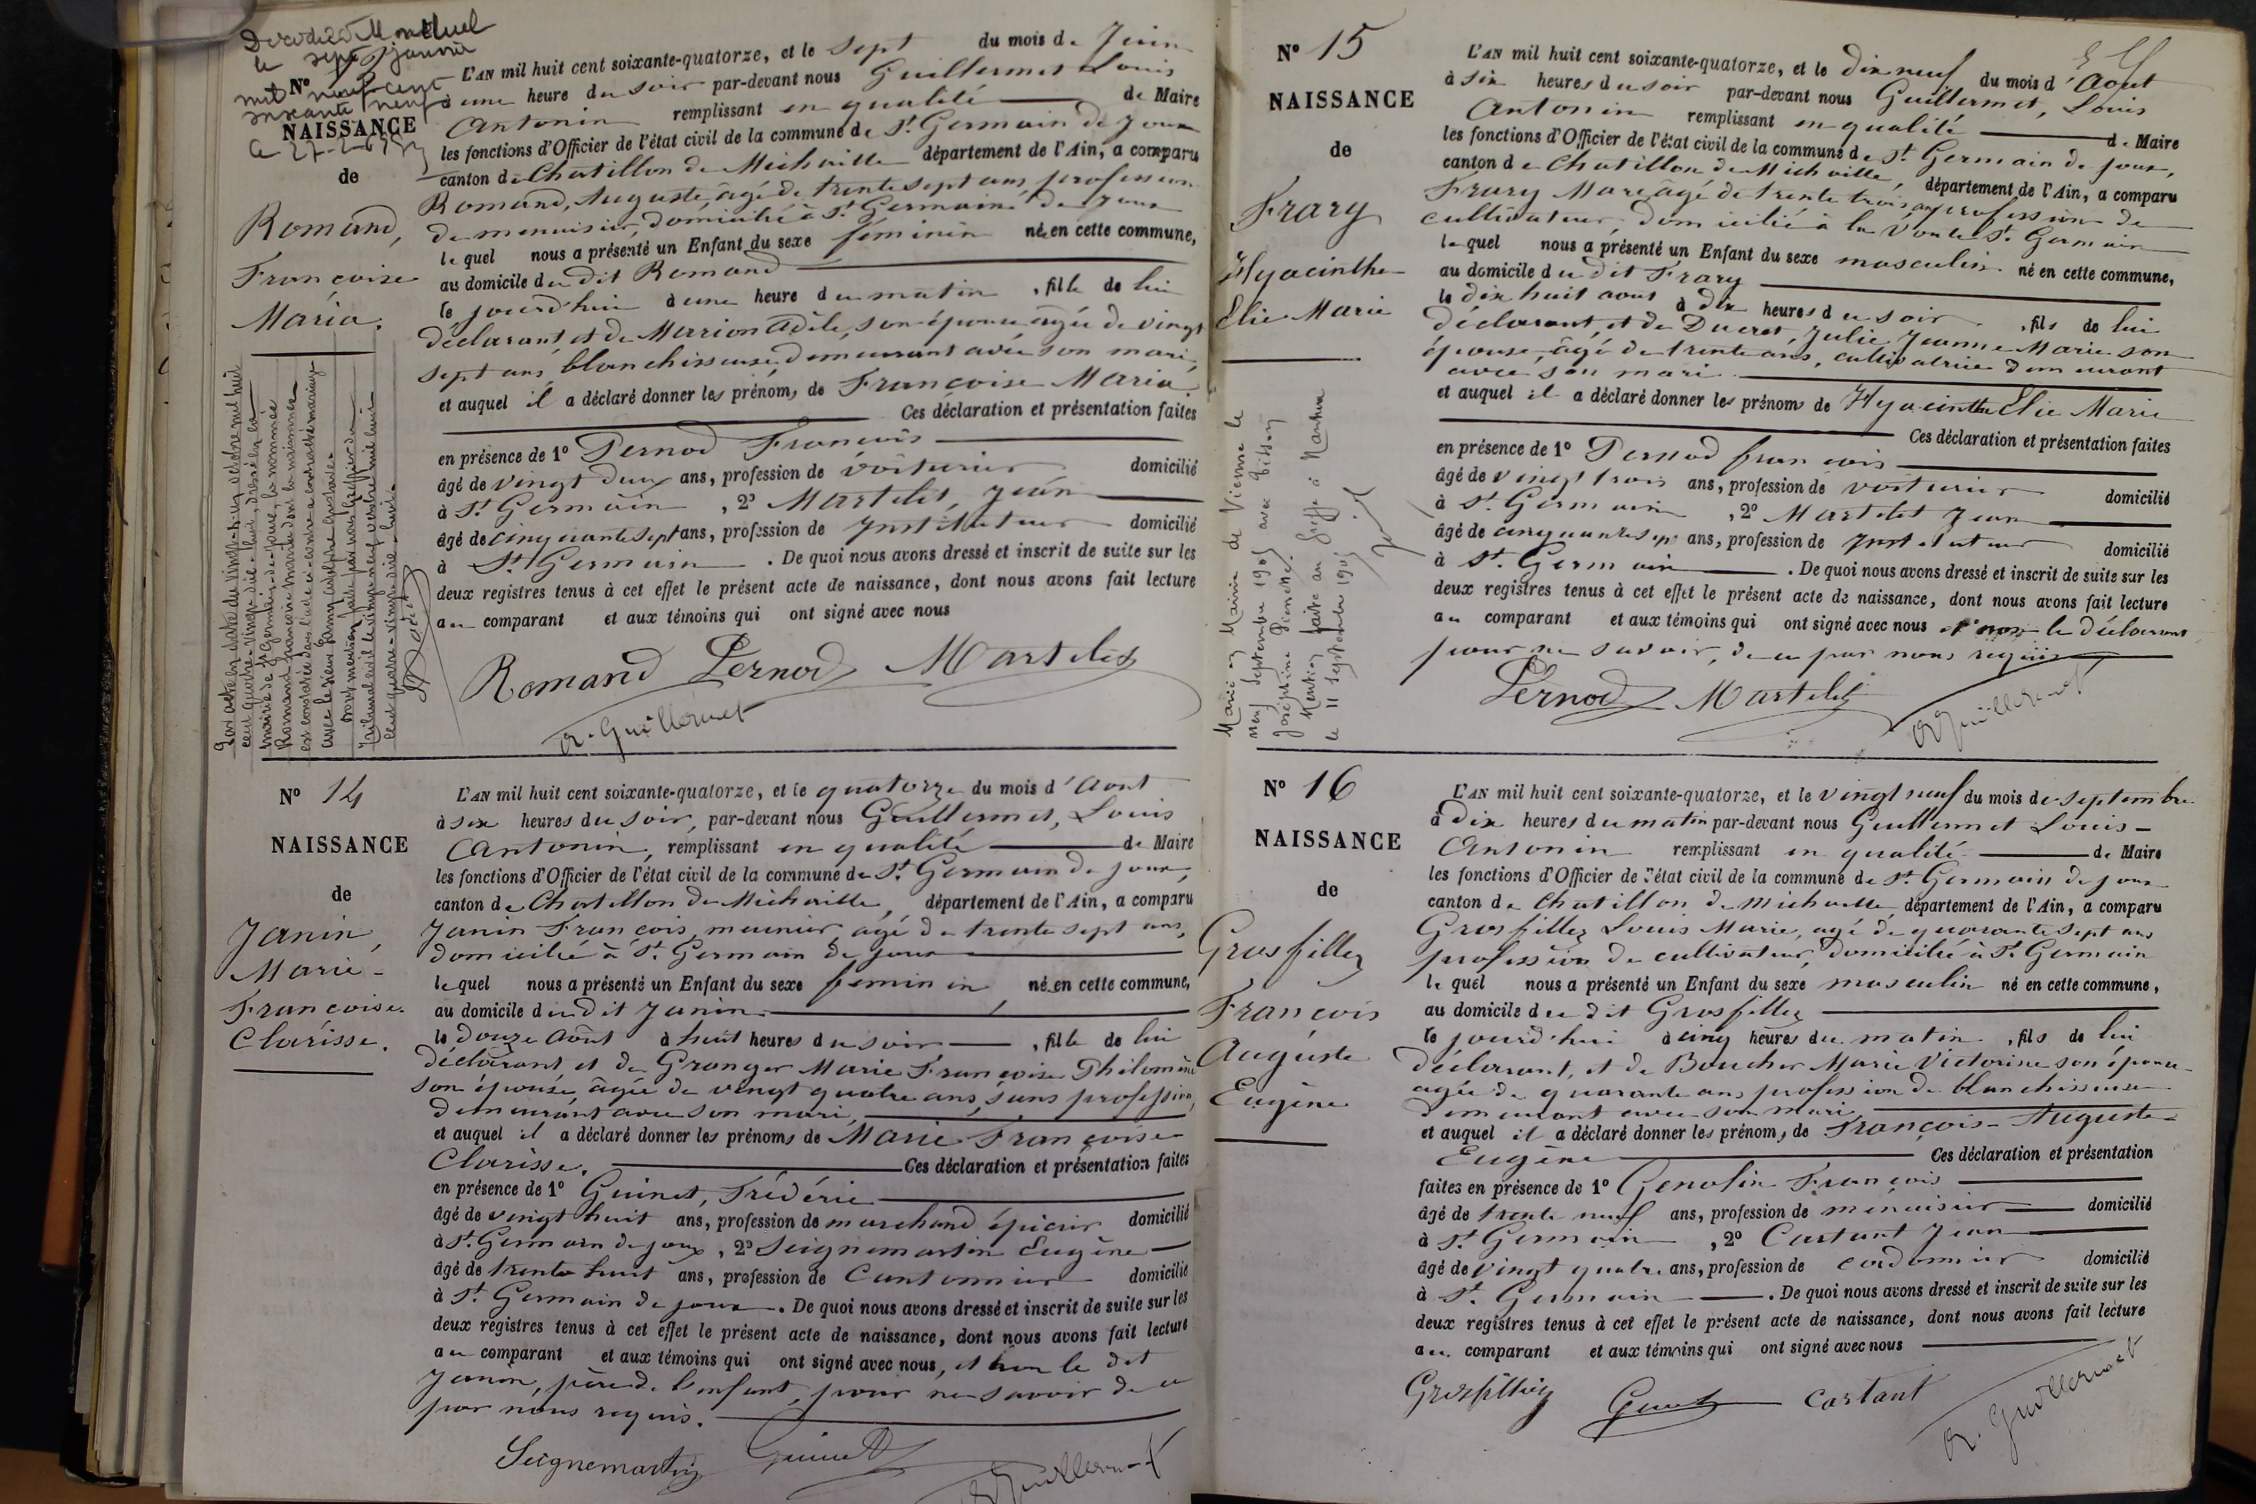 Décédée à Montluel
le sept janvier
mil neuf cent
soixante neuf
Nº
NAISSANCE
de
Romand,
Françoise
Maria.
L'AN mil huit cent soixante-quatorze, et le sept du mois de Juin
à une heure du soir par-devant nous Guillermet Louis
Antonin remplissant en qualité de Maire
les fonctions d'Officier de l'état civil de la commune de St. Germain de Joux
canton de Chatillon de Michaille département de l'Ain, a comparu
Romand, Auguste, âgé de trente sept ans, profession
de menuisier, domicilié à St. Germain de Joux
lequel nous a présenté un Enfant du sexe féminin née en cette commune,
au domicile du dit Romand
le jourd'hui à une heure du matin, fille de lui
déclarant et de Marion Adèle, son épouse âgée de vingt
sept ans, blanchisseuse demeurant avec son mari,
et auquel il a déclaré donner les prénoms de Françoise Maria
Ces déclaration et présentation faites
en présence de 1º Pernod François
âgé de vingt deux ans, profession de voiturier domicilié
à St. Germain, 2º Martelet, Jean
âgé de cinquante sept ans, profession de Instituteur domicilié
à St. Germain. De quoi nous avons dressé et inscrit de suite sur les
deux registres tenus à cet effet le présent acte de naissance, dont nous avons fait lecture
au comparant et aux témoins qui ont signé avec nous
Romand Pernod Martelet
A. Guillermet
Par acte en date du vingt-un octobre mil huit
cent quatre-vingt-dix-huit, dressé à la
mairie de St Germain-de-Joux, la nommée
Romand Françoise Maria dont la naissance
est constatée dans l'acte ci-contre a contracté mariage
avec le sieur Famy Adolphe Gustave.
Nº 14
NAISSANCE
de
Janin,
Marie-
Françoise
Clarisse.
L'AN mil huit cent soixante-quatorze, et le quatorze du mois d'Aout
à six heures du soir, par-devant nous Guillermet, Louis
Antonin, remplissant en qualité de Maire
les fonctions d'Officier de l'état civil de la commune de St. Germain de Joux,
canton de Chatillon de Michaille, département de l'Ain, a comparu
Janin François, meunier, âgé de trente sept ans,
domicilié à St. Germain de Joux
lequel nous a présenté un Enfant du sexe feminin née en cette commune,
au domicile du dit Janin.
le douze Août à huit heures du soir, fille de lui
déclarant et de Granger Marie Françoise Philomène
son épouse, âgée de vingt quatre ans, sans profession,
demeurant avec son mari,
et auquel il a déclaré donner les prénoms de Marie Françoise
Clarisse. Ces déclaration et présentation faites
en présence de 1º Guinet, Frédéric
âgé de vingt huit ans, profession de marchand épicier domicilié
à St. Germain de joux, 2º Seignemartin Eugène
âgé de trente huit ans, profession de Cantonnier domicilié
à St. Germain de joux. De quoi nous avons dressé et inscrit de suite sur les
deux registres tenus à cet effet le présent acte de naissance, dont nous avons fait lecture
au comparant et aux témoins qui ont signé avec nous, et non le dit
Janin, père de l'enfant, pour ne savoir de ce
par nous requis.
Seignemartin Guinet
A. Guillermet
Nº 15
NAISSANCE
de
Frary
Hyacinthe
Elie Marie
L'AN mil huit cent soixante-quatorze, et le dix neuf du mois d'Aout
à six heures du soir par-devant nous Guillermet, Louis
Antonin remplissant en qualité de Maire
les fonctions d'Officier de l'état civil de la commune de St. Germain de joux,
canton de Chatillon de Michaille, département de l'Ain, a comparu
Frary Marc âgé de trente trois ans profession de
cultivateur, domicilié à la Voute St. Germain
lequel nous a présenté un Enfant du sexe masculin né en cette commune,
au domicile du dit Frary
le dix huit aout à dix heures du soir, fils de lui
déclarant, et de Ducret, Julie Jeanne Marie son
épouse, âgé de trente ans, cultivatrice demeurant
avec son mari
et auquel il a déclaré donner les prénoms de Hyacinthe Elie Marie
Ces déclaration et présentation faites
en présence de 1º Pernod françois
âgé de vingt trois ans, profession de voiturier domicilié
à St. Germain, 2º Martelet Jean
âgé de cinquante sept ans, profession de Instituteur domicilié
à St. Germain. De quoi nous avons dressé et inscrit de suite sur les
deux registres tenus à cet effet le présent acte de naissance, dont nous avons fait lecture
au comparant et aux témoins qui ont signé avec nous et non le déclarant
pour ne savoir, de ce par nous requis
Pernod Martelet
A. Guillermet
Marié en Mairie de Vienne le
neuf septembre
Joséphine
Mention faite au Greffe à Nantua
le 11 septembre
Nº 16
NAISSANCE
de
Grosfilley
François
Auguste
Eugène
L'AN mil huit cent soixante-quatorze, et le vingt neuf du mois de septembre
à dix heures du matin par-devant nous Guillermet Louis-
Antonin remplissant en qualité de Maire
les fonctions d'Officier de l'état civil de la commune de St. Germain de joux
canton de Chatillon de Michaille département de l'Ain, a comparu
Grosfilley Louis Marie, agé de quarante sept ans
profession de cultivateur, domicilié à St. Germain
lequel nous a présenté un Enfant du sexe masculin né en cette commune,
au domicile du dit Grosfilley
le jourd'hui à cinq heures du matin, fils de lui
déclarant, et de Boucher Marie Victorine son épouse
agée de quarante ans profession de blanchisseuse
demeurant avec son mari,
et auquel il a déclaré donner les prénoms de François-Auguste-
Eugène Ces déclaration et présentation
faites en présence de 1º Genolin François
âgé de trente neuf ans, profession de menuisier domicilié
à St. Germain, 2º Cartant Jean
âgé de vingt quatre ans, profession de cordonnier domicilié
à St. Germain. De quoi nous avons dressé et inscrit de suite sur les
deux registres tenus à cet effet le présent acte de naissance, dont nous avons fait lecture
au comparant et aux témoins qui ont signé avec nous
Grosfilley Cartant
A. Guillermet